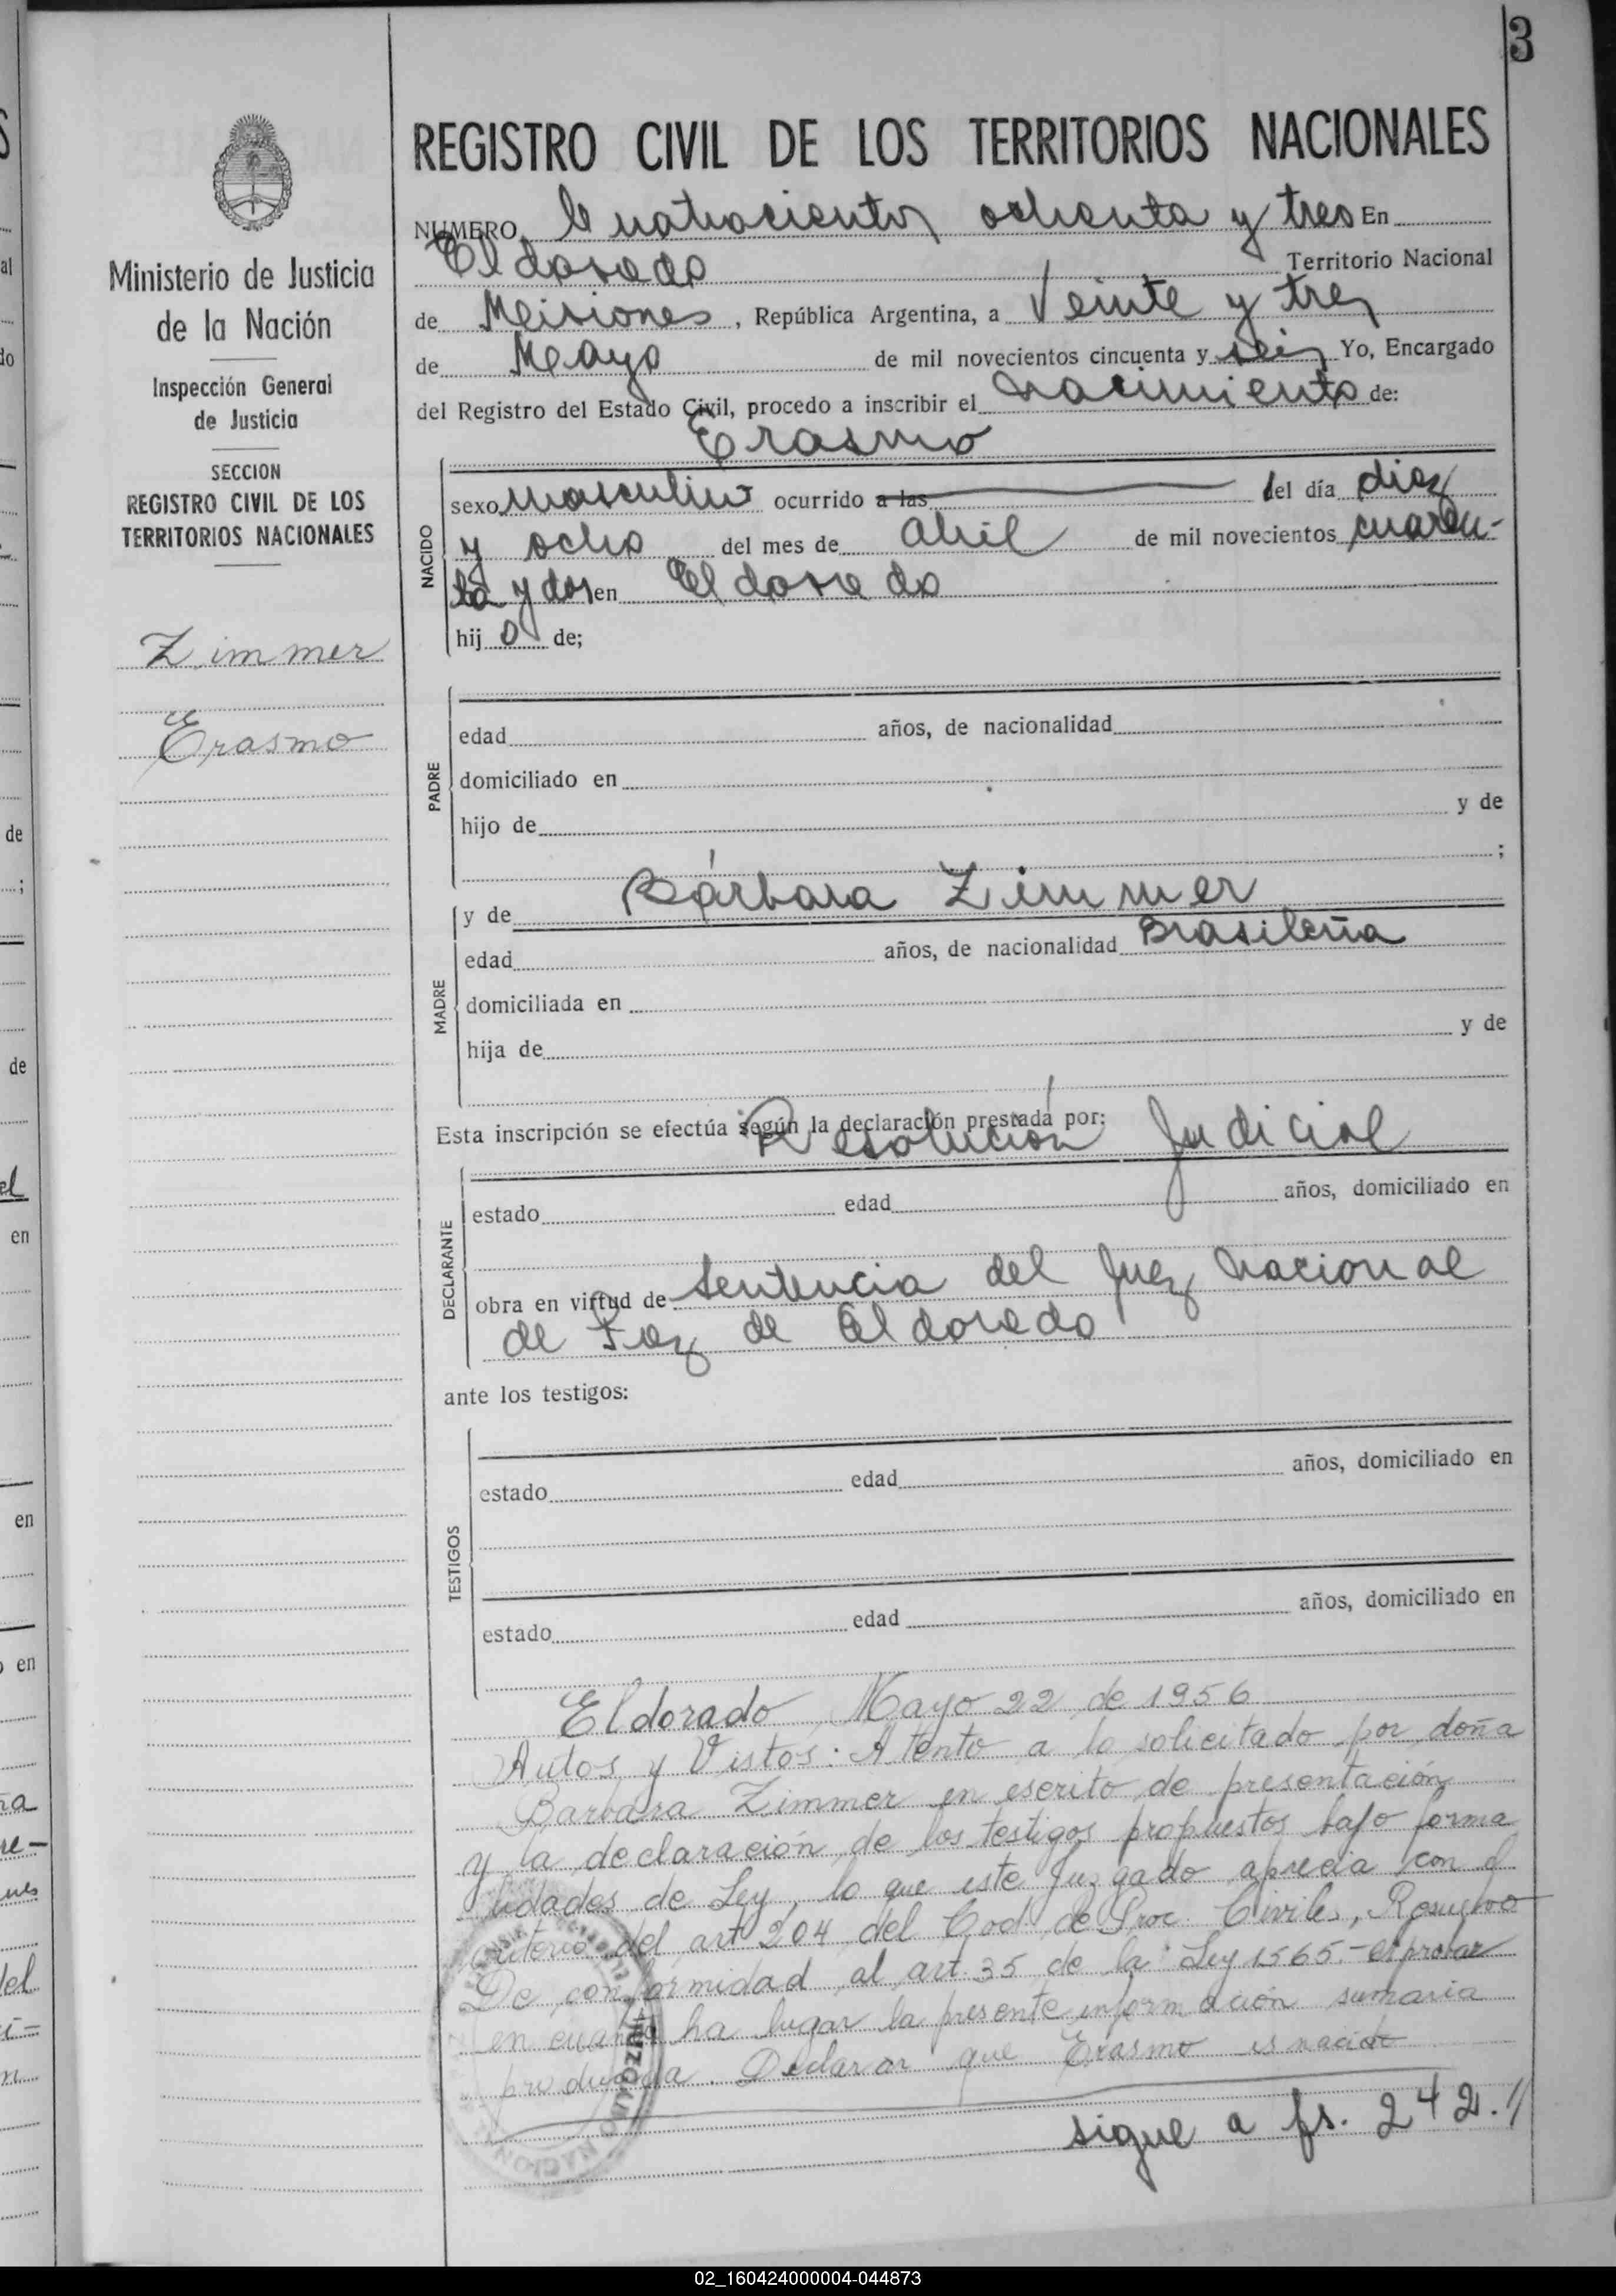 3
REGISTRO CIVIL DE LOS TERRITORIOS NACIONALES
NUMERO Cuatrocientos ochenta y tres En
Eldorado Territorio Nacional
de Misiones, República Argentina, a Veinte y tres
de Mayo de mil novecientos cincuenta y seis Yo, Encargado
del Registro del Estado Civil, procedo a inscribir el nacimiento de:
Erasmo
NACIDO
sexo masculino ocurrido a las del día diez
y ocho del mes de Abril de mil novecientos cuaren-
ta y dos en Eldorado
hij o de;
PADRE
edad años, de nacionalidad
domiciliado en
hijo de y de
;
MADRE
y de Bárbara Zimmer
edad años, de nacionalidad Brasileña
domiciliada en
hija de y de
Esta inscripción se efectúa según la declaración prestada por:
Resolución Judicial
DECLARANTE
estado edad años, domiciliado en
obra en virtud de sentencia del Juez Nacional
de Paz de Eldorado
ante los testigos:
TESTIGOS
estado edad años, domiciliado en
estado edad años, domiciliado en
Eldorado, Mayo 22 de 1956
Autos y Vistos: Atento a lo solicitado por doña
Barbara Zimmer en escrito de presentación
y la declaración de los testigos propuestos bajo forma
lidades de Ley, lo que este Juzgado aprecia con el
criterio del art 204 del Cod. de Proc. Civiles, Resuelvo
De conformidad al art. 35 de la Ley 1565.-
en cuanto ha lugar la presente información sumaria
producida. Declarar que Erasmo es nacido
sigue a fs. 242.//
Ministerio de Justicia
de la Nación
Inspección General
de Justicia
SECCION
REGISTRO CIVIL DE LOS
TERRITORIOS NACIONALES
Zimmer
Erasmo
02_160424000004-044873